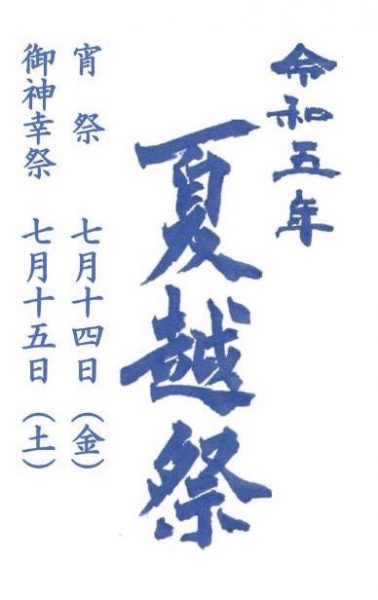 令和五年
夏越祭
宵祭 七月十四日（金）
御神幸祭 七月十五日（土）